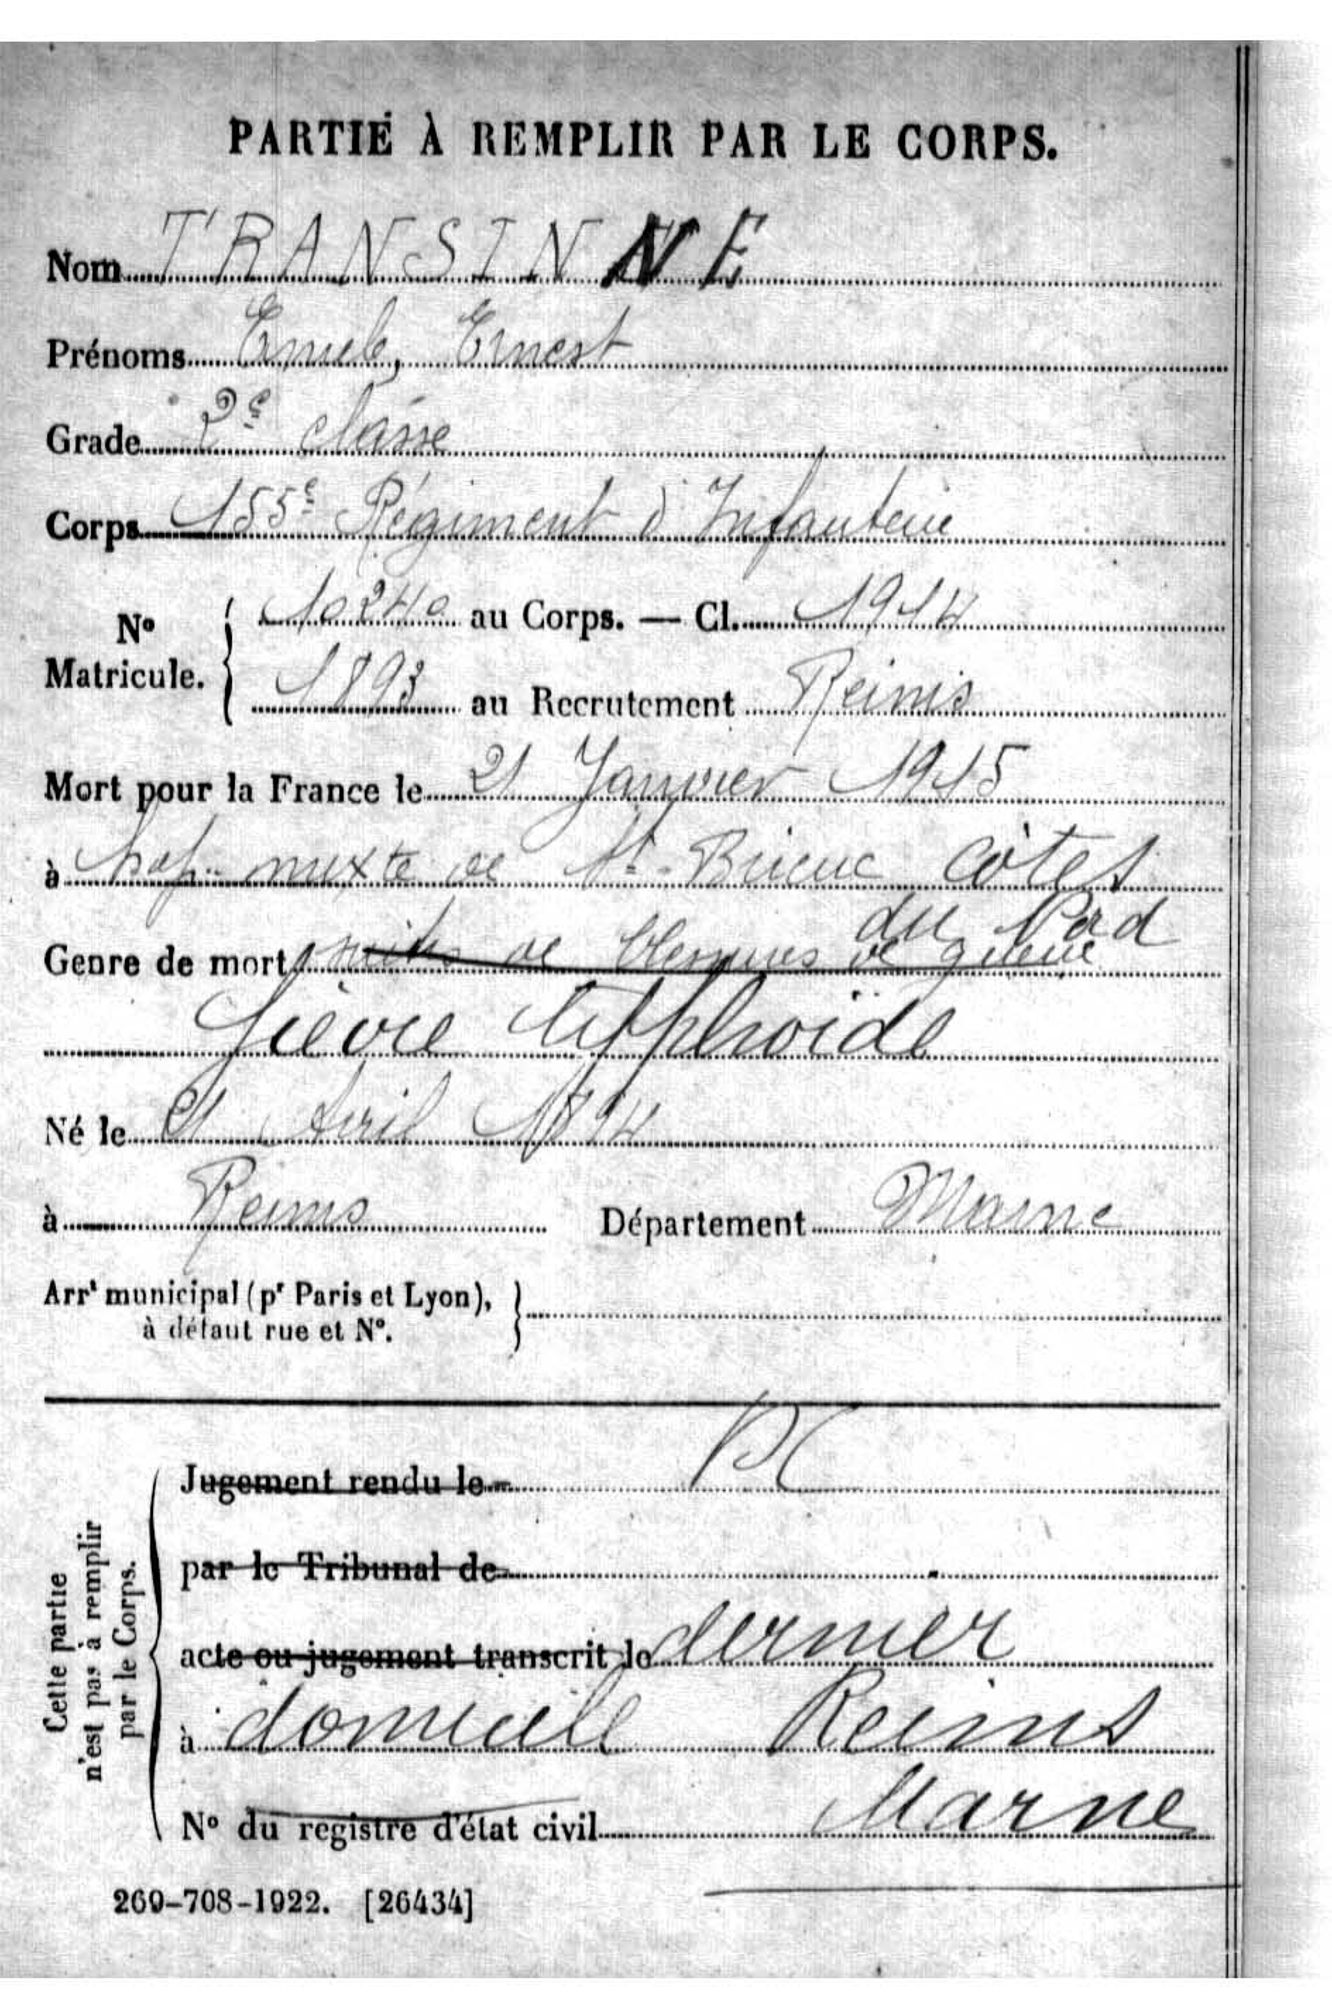 PARTIE À REMPLIR PAR LE CORPS.
Nom TRANSINNE
Prénoms Emile, Ernest
Grade 2e classe
Corps 155e Régiment d'Infanterie
No Matricule. { 10240 au Corps. — Cl. 1914
1893 au Recrutement Reims
Mort pour la France le 21 Janvier 1915
à hop. mixte de St-Brieuc Côtes
du Nord
Genre de mort suites de blessures de guerre
fièvre typhoïde
Né le Avril 1894
à Reims Département Marne
Arrt municipal (pr Paris et Lyon), }
à défaut rue et No.
Jugement rendu le
par le Tribunal de
acte ou jugement transcrit le dernier
à domicile Reims
No du registre d'état civil Marne
Cette partie
n'est pas à remplir
par le Corps.
269-708-1922. [26434]